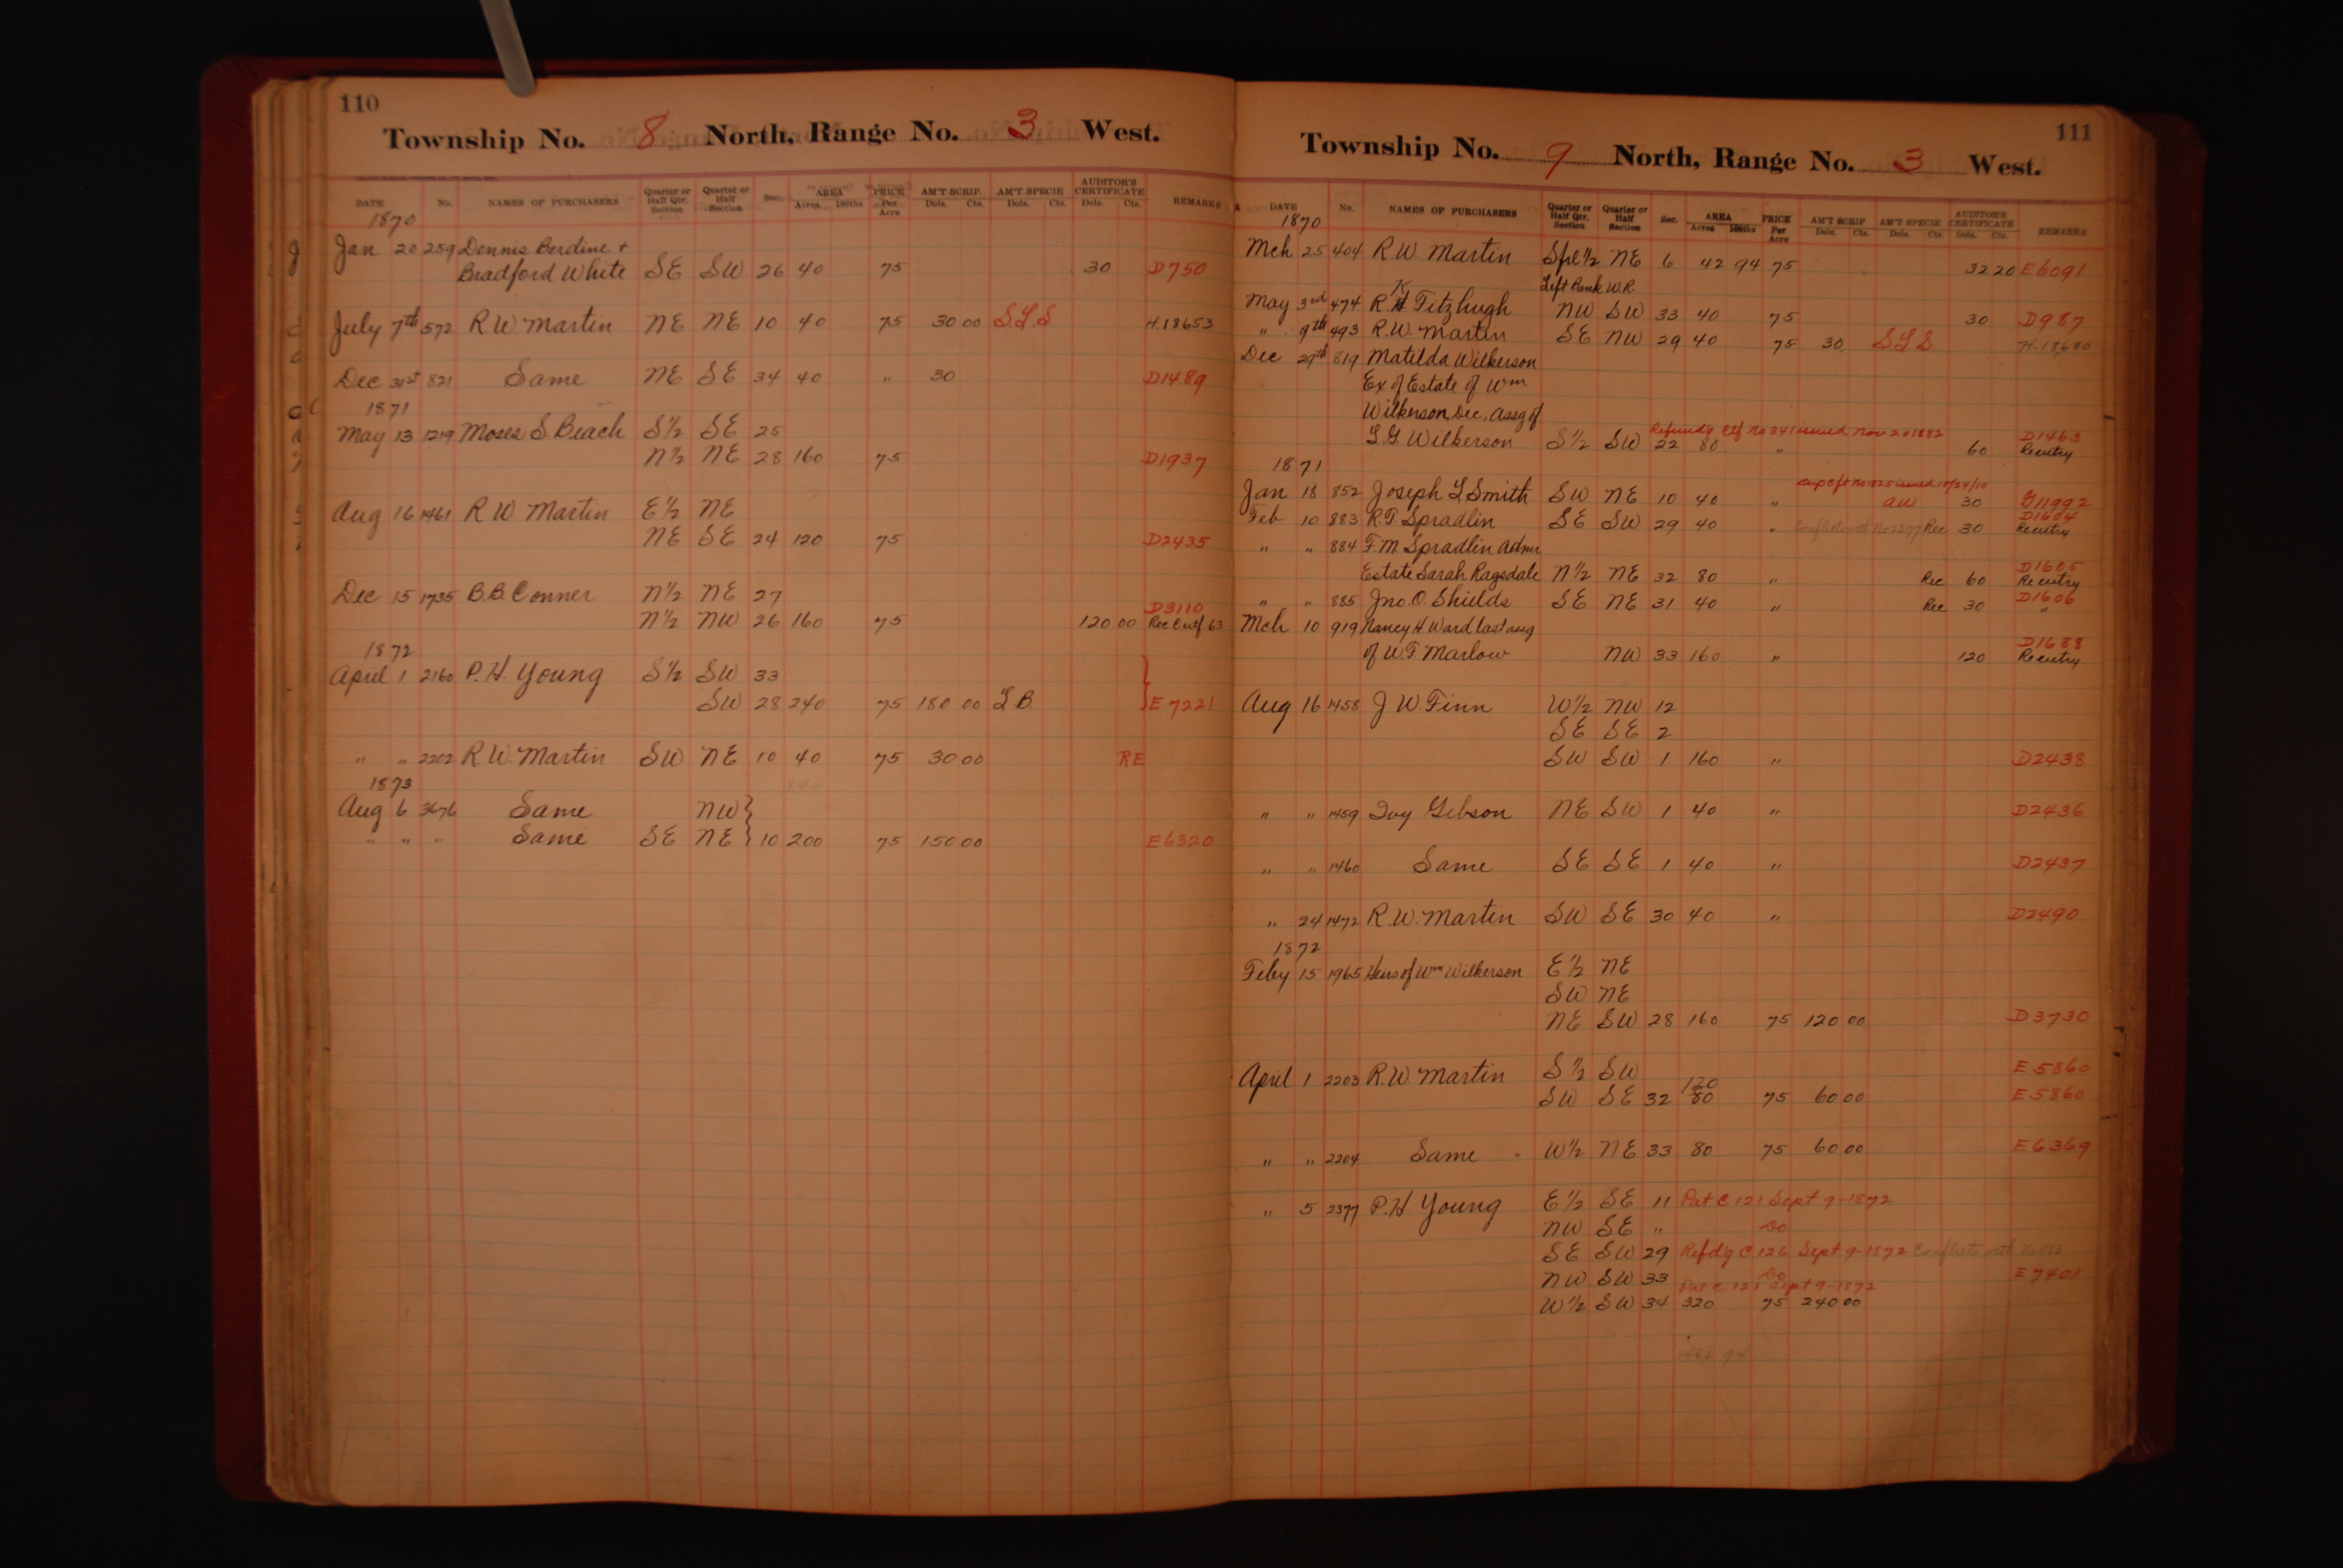 110
Township No. 8 North, Range No. 3 West.
DATE No. NAMES OF PURCHASERS Quarter or Half Qtr. Section Quarter or Half Section Sec. AREA Acres 100ths PRICE Per Acre AM'T SCRIP Dols. Cts. AM'T SPECIE Dols. Cts. AUDITOR'S CERTIFICATE Dols. Cts. REMARKS
1870
Jan 20 259 Dennis Berdine +
Bradford White SE SW 26 40 75 30 D750
July 7th 572 R.W. Martin NE NE 10 40 75 30 00 S.L.S H.18653
Dec 31st 821 Same NE SE 34 40 " 30 D1489
1871
May 13 1219 Moses S. Beach S½ SE 25
N½ NE 28 160 75 D1937
Aug 16 1461 R.W. Martin E½ NE
NE SE 24 120 75 D2435
Dec 15 1735 B.B. Conner N½ NE 27
D3110
N½ NW 26 160 75 120 00 Rec Certf 63
1872
April 1 2160 P.H. Young S½ SW 33
SW 28 240 75 180 00 L.B. E7221
" " 2202 R.W. Martin SW NE 10 40 75 30 00 RE
1873
Aug 6 3676 Same NW
" " " Same SE NE 10 200 75 150 00 E6320
111
Township No. 9 North, Range No. 3 West.
DATE No. NAMES OF PURCHASERS Quarter or Half Qtr. Section Quarter or Half Section Sec. AREA Acres 100ths PRICE Per Acre AM'T SCRIP Dols. Cts. AM'T SPECIE Dols. Cts. AUDITOR'S CERTIFICATE Dols. Cts. REMARKS
1870
Mch 25 404 R.W. Martin Spl½ NE 6 42 94 75 32 20 E6091
Left Bank W.R.
K
May 3rd 474 R H Fitzhugh NW SW 33 40 75 30 D987
" 9th 493 R.W. Martin SE NW 29 40 75 30 S.L.S.
Dec 29th 819 Matilda Wilkerson
Ex of Estate of Wm
Wilkerson, Dec. Assg of
Refundg Ctf No 341 issued Nov 20 1882 D1463
L.G. Wilkerson S½ SW 22 80 " 60 Reentry
1871
Jan 18 852 Joseph L Smith SW NE 10 40 " aw 30 G11992
D1604
Feb 10 883 R.T. Spradlin SE SW 29 40 " Rec 30 Reentry
" " 884 F.M. Spradlin Admr
D1605
Estate Sarah Ragsdale N½ NE 32 80 " Rec 60 Reentry
D1606
" " 885 Jno. O. Shields SE NE 31 40 " Rec 30 "
Mch 10 919 Nancy H Ward last assg
D1688
of W.F. Marlow NW 33 160 " 120 Reentry
Aug 16 1458 J W. Finn W½ NW 12
SE SE 2
SW SW 1 160 " D2438
" " 1459 Ivy Gibson NE SW 1 40 " D2436
" " 1460 Same SE SE 1 40 " D2437
" 24 1472 R.W. Martin SW SE 30 40 " D2490
1872
Feby 15 1965 Heirs of Wm Wilkerson E½ NE
SW NE
NE SW 28 160 75 120 00 D3730
April 1 2203 R.W. Martin S½ SW E5860
120
SW SE 32 80 75 60 00 E5860
" " 2204 Same W½ NE 33 80 75 60 00 E6369
" 5 2377 P.H Young E½ SE 11 Pat C 121 Sept 9-1872
NW SE " Do
SE SW 29 Refdg C 126 Sept 9-1872 Conflicts with
NW SW 33 Do E7401
Pat C 121 Sept 9-1872
W½ SW 34 320 75 240 00